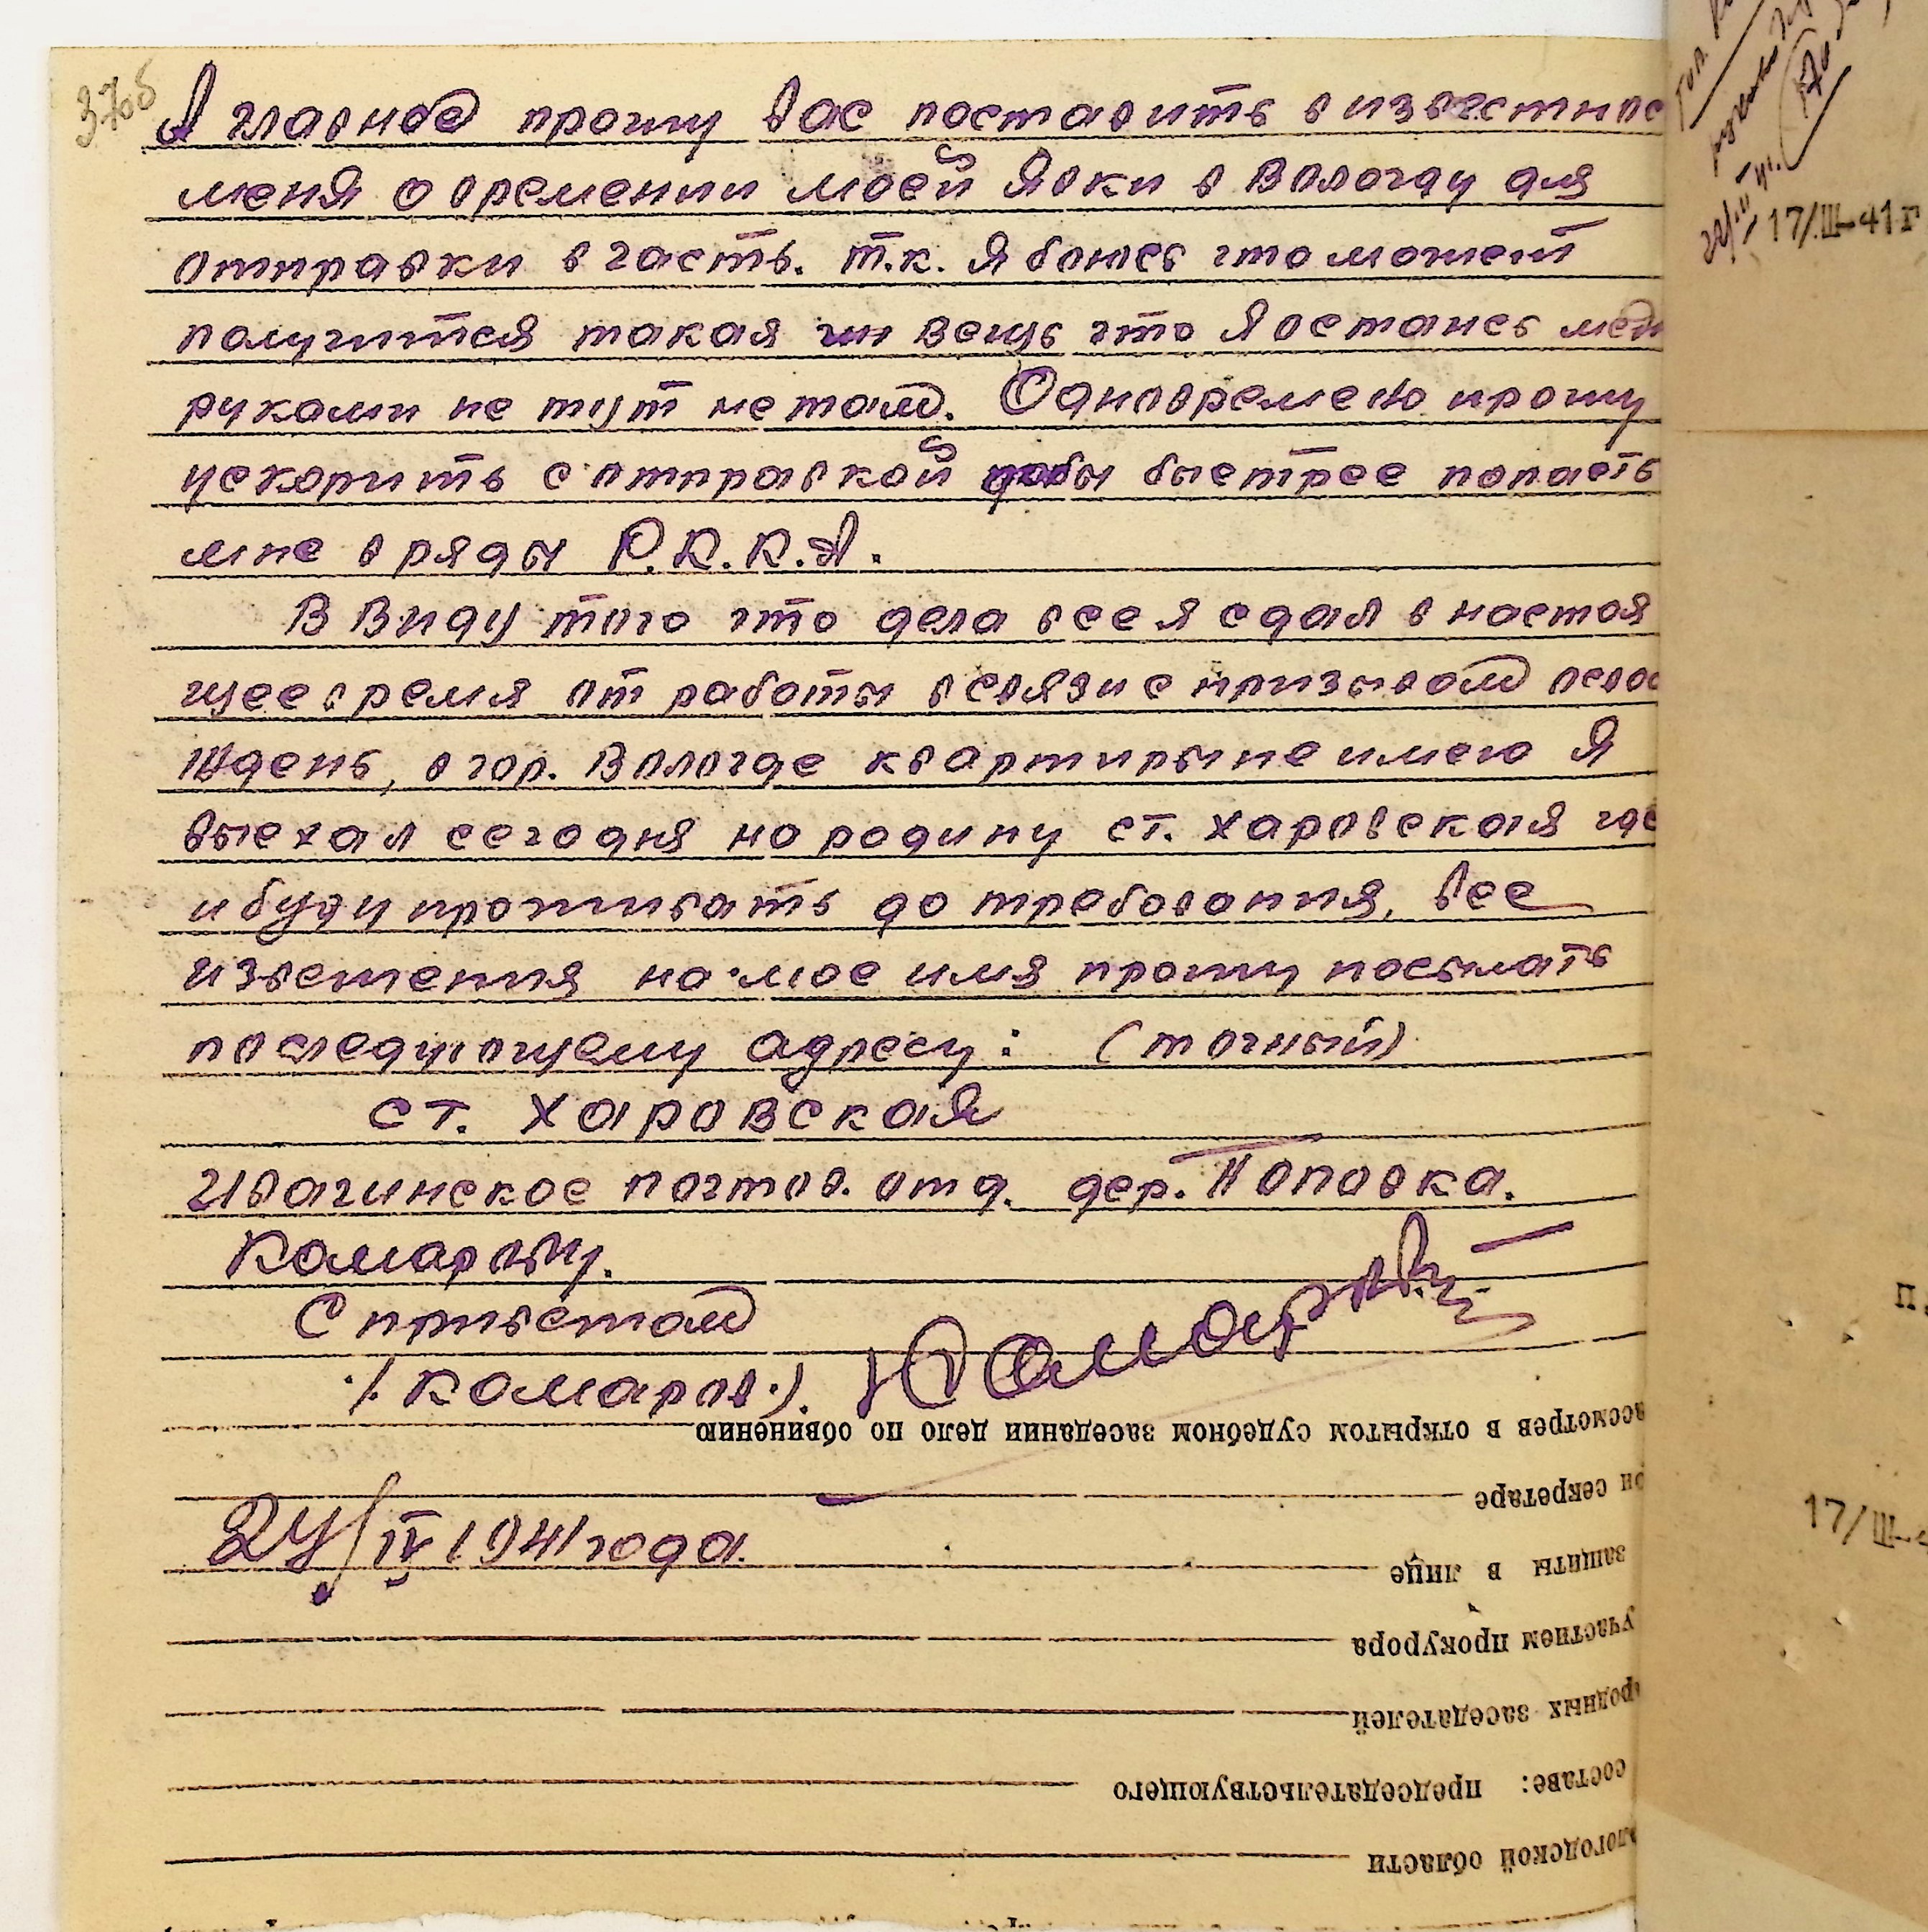 37об
А главное прошу вас поставить в известнос
меня о времении моей Явки в Вологду для
отправки в часть. т.к. Я боюсь что может
получится такая вещь что Я останусь меж
руками не тут не там. Одновремено прошу
ускорить с отправкой чтобы быстрее попасть
мне в ряды Р.К.К.А.
В Виду того что дела все я сдал в настоя
щее время от работы в связи с призывом осво
жден, в гор. Вологде квартиры не имею Я
выехал сегодня на родину ст. Харовская где
и буду проживать до требования, все
извещения на мое имя прошу посылать
последующему адресу: (точный)
ст. Харовская
Ивачинское почтов. отд. дер. Поповка.
Комарову.
С приветом
/Комаров./.
24/IV 1941 года.
ассмотрев в открытом судебном заседании дело по обвинению
ри секретаре
защиты в лице
участием прокурора
родных заседателей
составе: председательствующего
логодской области
17/III-41г
17/III-